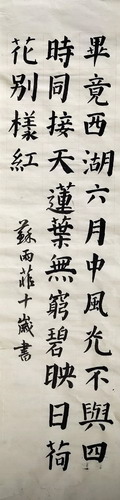 畢竟西湖六月中風光不與四
時同接天蓮葉無窮碧映日荷
花别樣紅
蘇雨菲十歲書